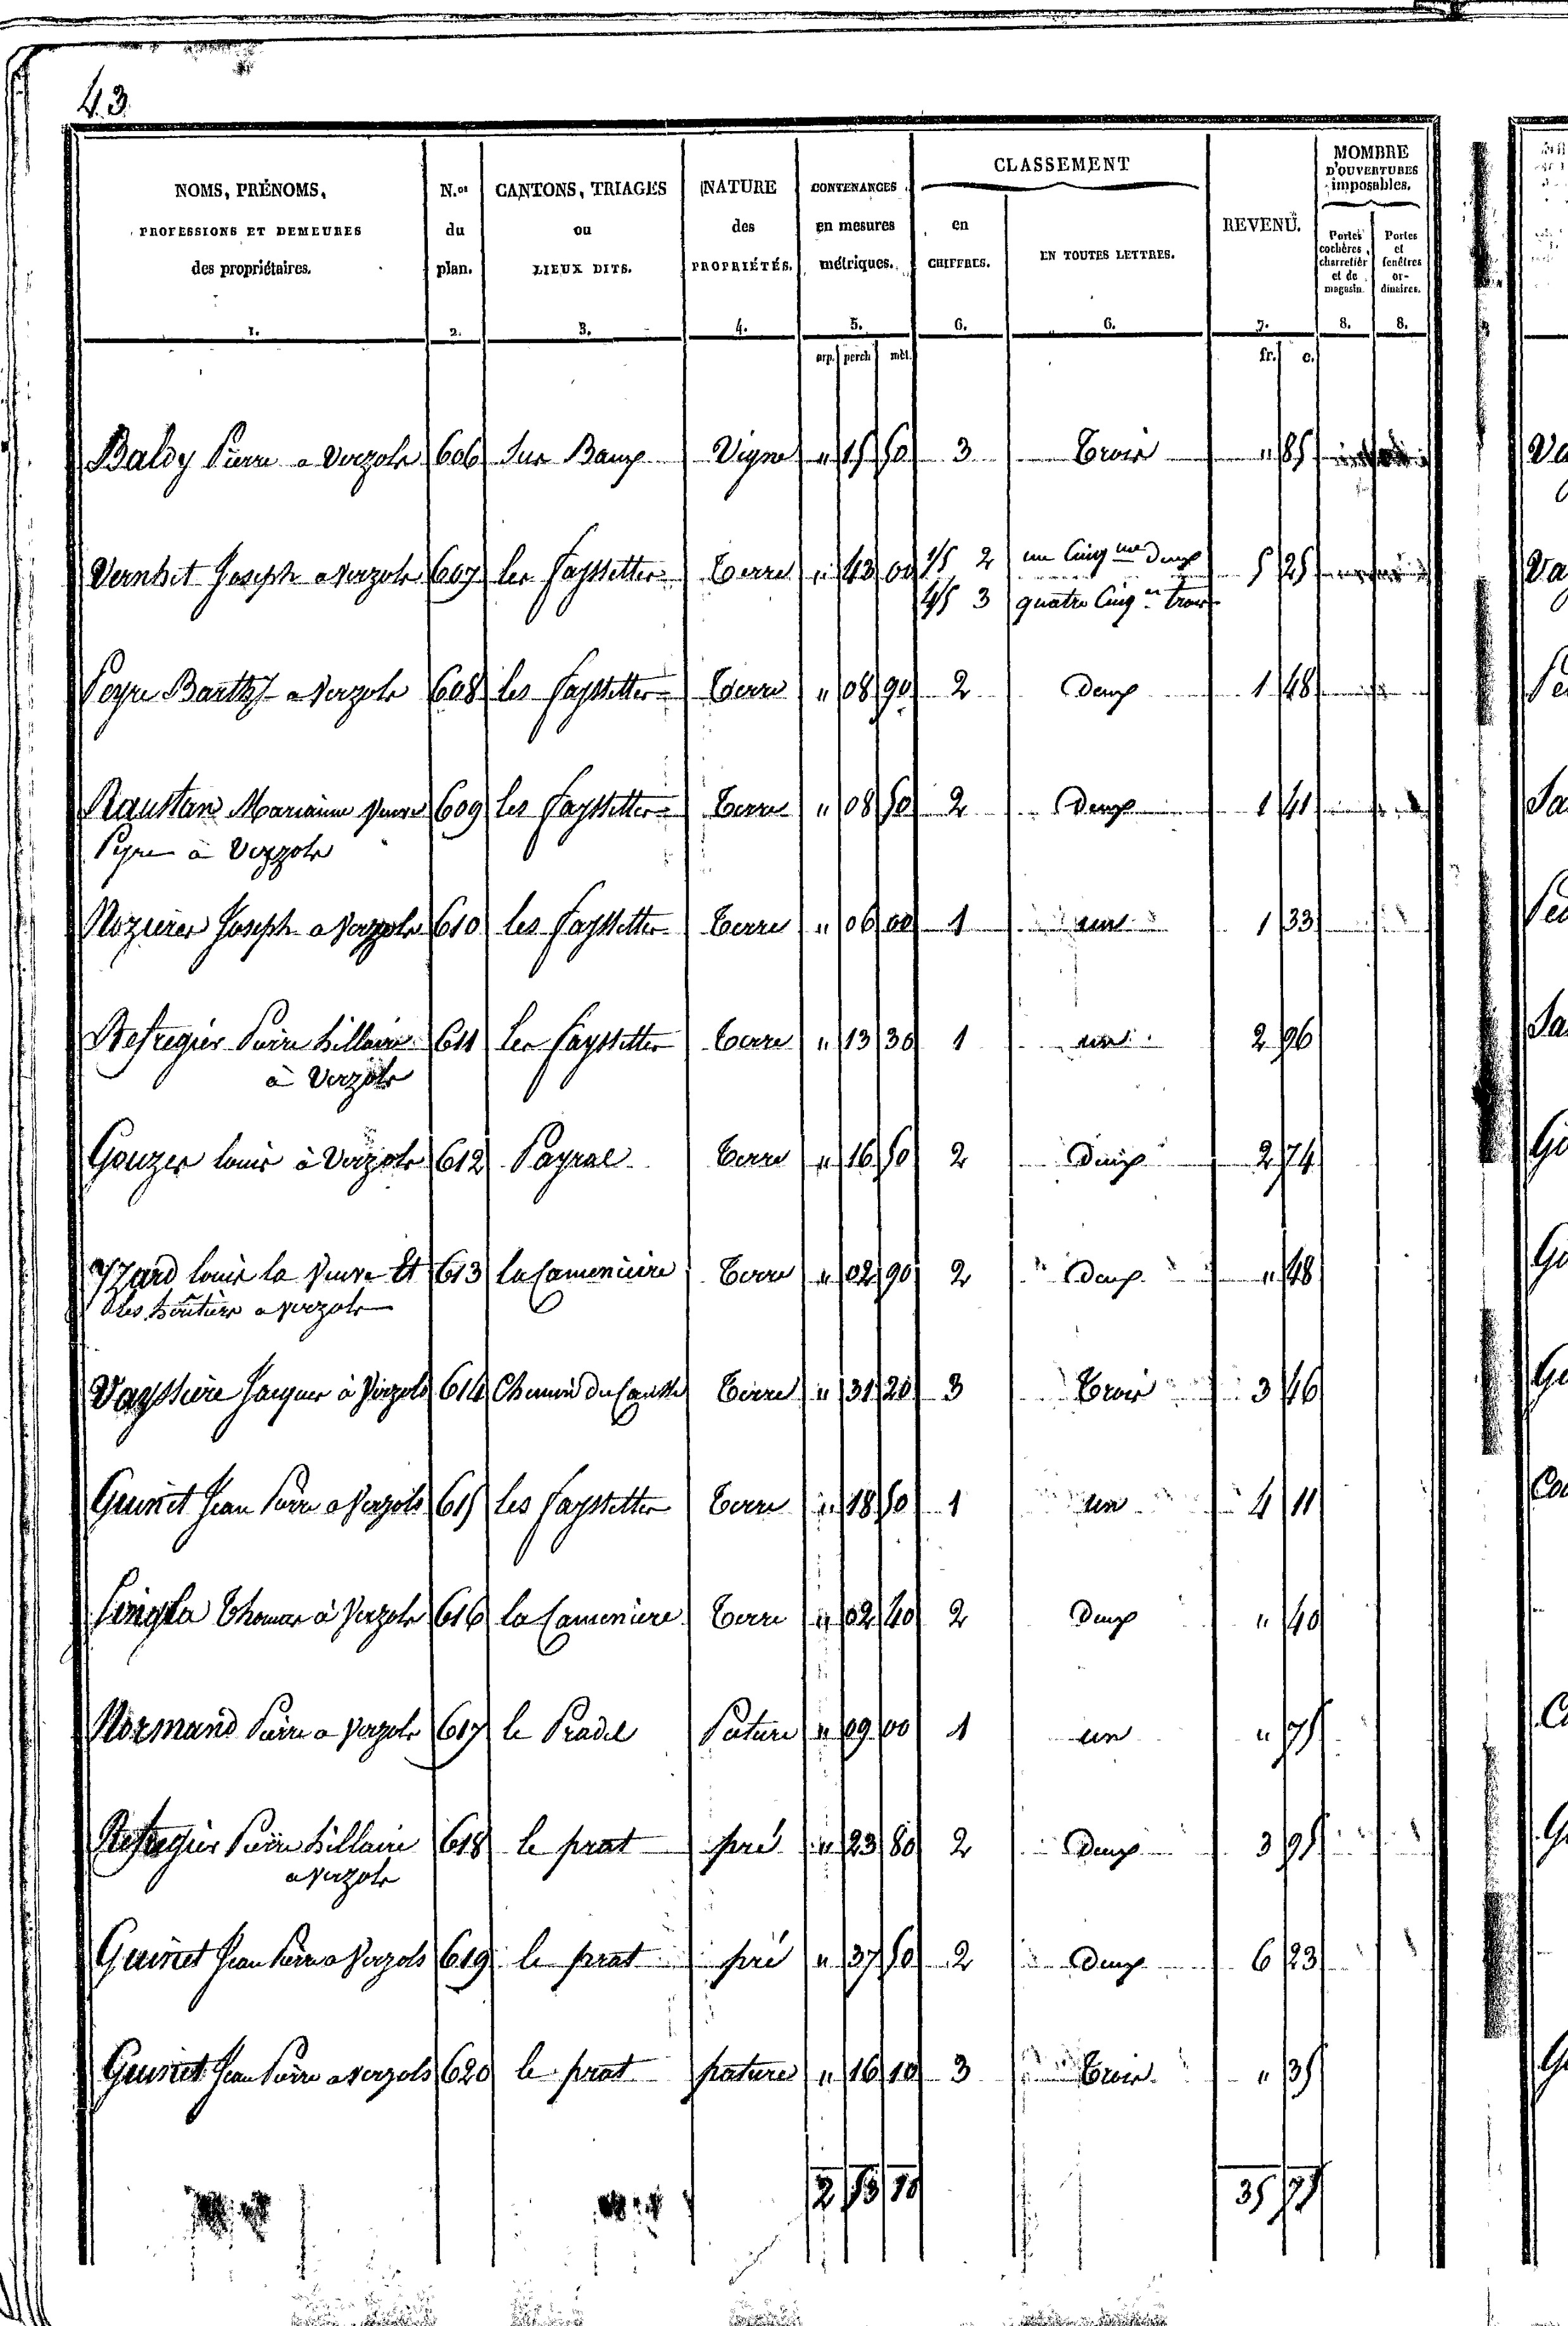 43
NOMS, PRÉNOMS, PROFESSIONS ET DEMEURES des propriétaires. 1.
N.os du plan. 2.
CANTONS, TRIAGES ou LIEUX DITS. 3.
NATURE des PROPRIÉTÉS. 4.
CONTENANCES en mesures métriques. 5.
CLASSEMENT
en CHIFFRES. 6.
EN TOUTES LETTRES. 6.
REVENU. 7.
MOMBRE D'OUVERTURES imposables.
Portes cochères, charretièr et de magasin. 8.
Portes et fenêtres ordinaires. 8.
arp. perch. mèt. fr. c.
Baldy Pierre a Verzols 606 Sur Baux Vigne " 15 50 3 Trois " 85
Vernhet Joseph a Verzols 607 les Fayssettes Terre " 43 00 1/5 2 un Cinq me Deux 5 25
4/5 3 quatre Cinq es trois
Peyre Barthy a Verzols 608 les Fayssettes Terre " 08 90 2 Deux 1 48
Raustan Marianne Veuve 609 les Fayssettes Terre " 08 50 2 Deux 1 41
Peyre à Verzols
Nozieres Joseph a Verzols 610 les Fayssettes Terre " 06 00 1 un 1 33
Refregier Pierre hillaire 611 Les Fayssettes Terre " 13 30 1 un 2 96
à Verzols
Gouzes louis à Verzols 612 Payrac Terre " 16 50 2 Deux 2 74
Yzard louis la Veuve Et 613 la Cameniere Terre " 02 90 2 Deux " 48
les héritiers a Verzols
Vayssiere Jacques à Verzols 614 Chemin du Causse Terre " 31 20 3 Trois 3 46
Guiniet Jean Pierre a Verzols 615 les Fayssettes Terre " 18 50 1 un 4 11
Singla Thomas à Verzols 616 la Cameniere Terre " 02 40 2 Deux " 40
Normand Pierre a Verzols 617 le Pradel Pature " 09 00 1 un " 75
Refregier Pierre hillaire 618 le prat pré " 23 80 2 Deux 3 95
a Verzols
Guiniet Jean Pierre a Verzols 619 le prat pré " 37 50 2 Deux 6 23
Guiniet Jean Pierre a Verzols 620 le prat pature " 16 10 3 Trois " 35
2 53 10 35 75